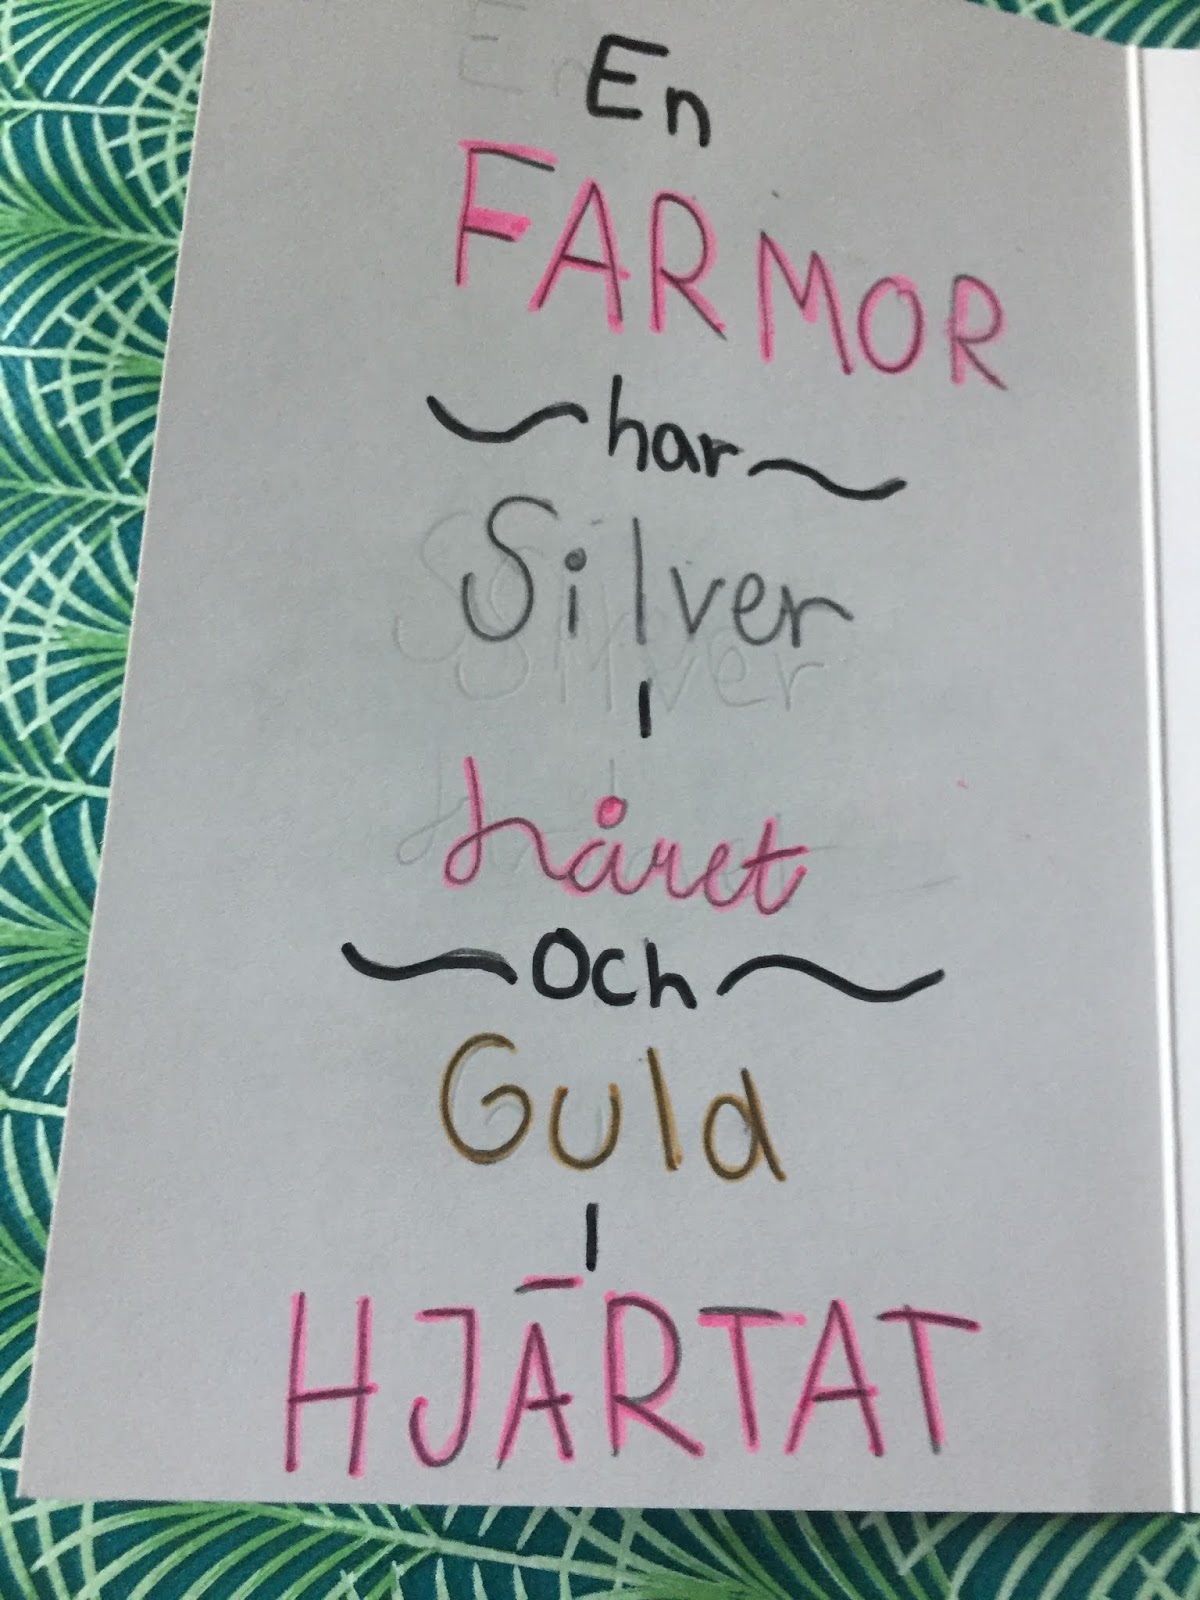 En
FARMOR
har
Silver
I
håret
Och
Guld
I
HJÄRTAT